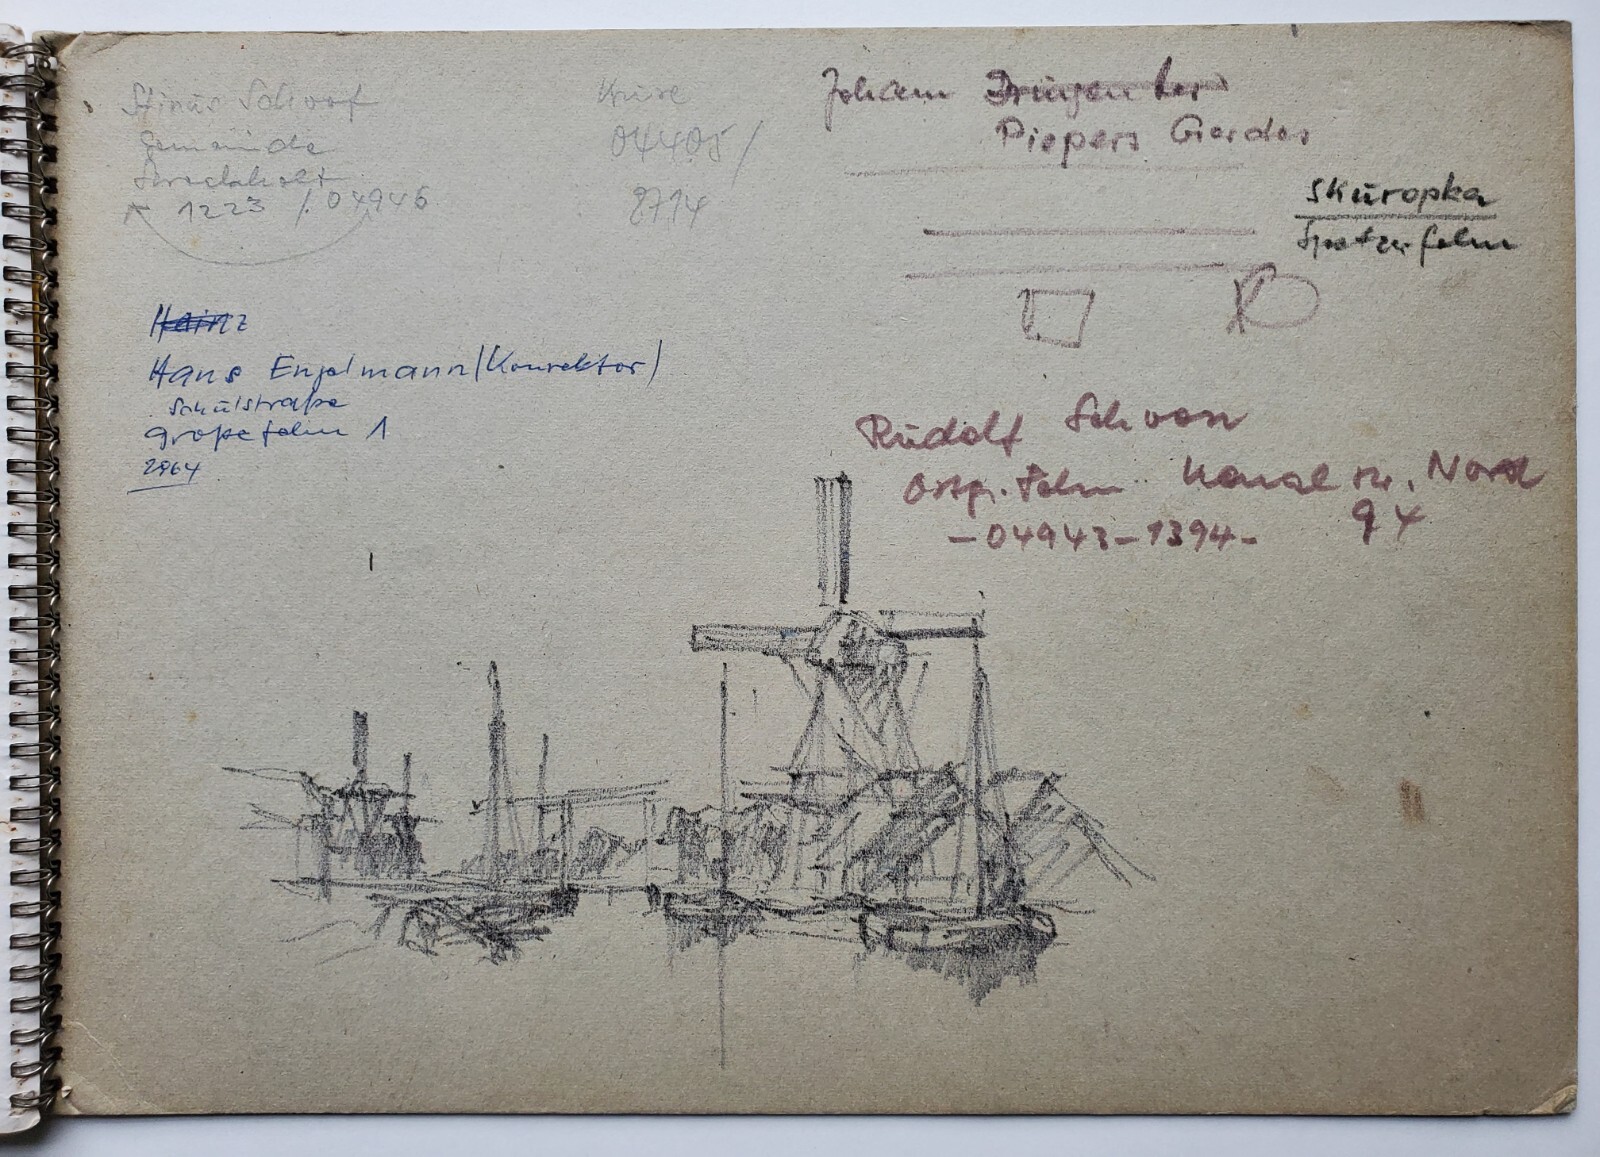 Stinus Schoof
Gemeinde
Strackholt
1223 / 04946
Kruse
04405/
8714
Johann
Piepers Gerdes
Skuropka
Spetzerfehn
Heinz
Hans Engelmann (Konrektor)
Schulstraße
Großefehn 1
2964
Rudolf Schoon
Ostgr. Fehn Kanal str. Nord
94
-04943-1394-